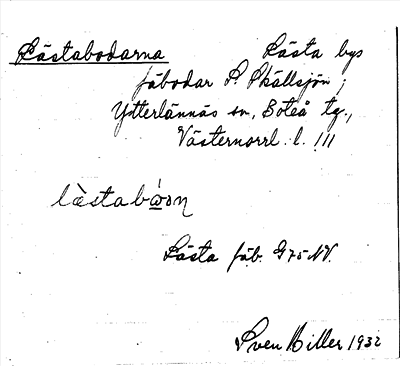 Lästabodarna Lästa bys
fäbodar S. Skällsjön,
Ytterlännäs sn, Boteå tg.,
Västernorrl. l. III
Lästa fäb. G75 NV.
Sven Hiller 1932